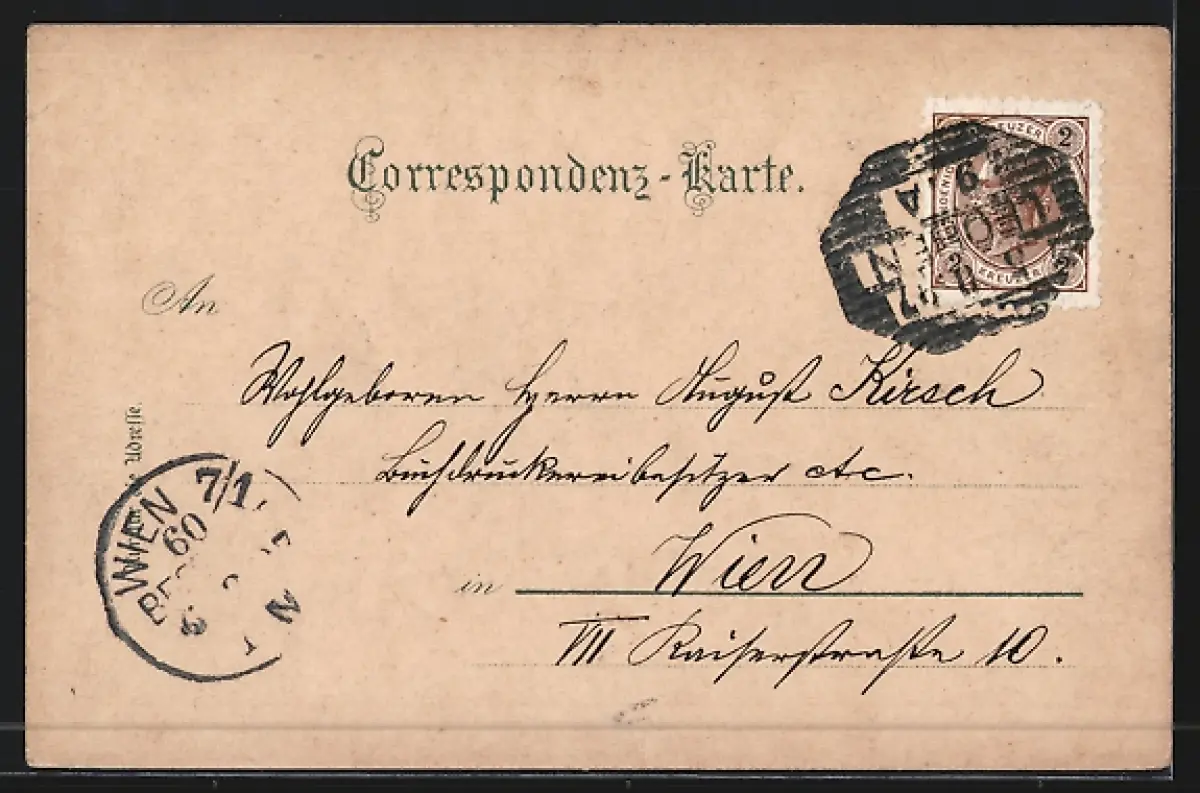 Correspondenz-Karte.
KREUZER 2
2 KREUZER 2
An
Wohlgeboren Herrn August Kirsch
Buchdruckereibesitzer etc.
in Wien
VII Kaiserstraße 10.
Adresse.
WIEN 7/1
60